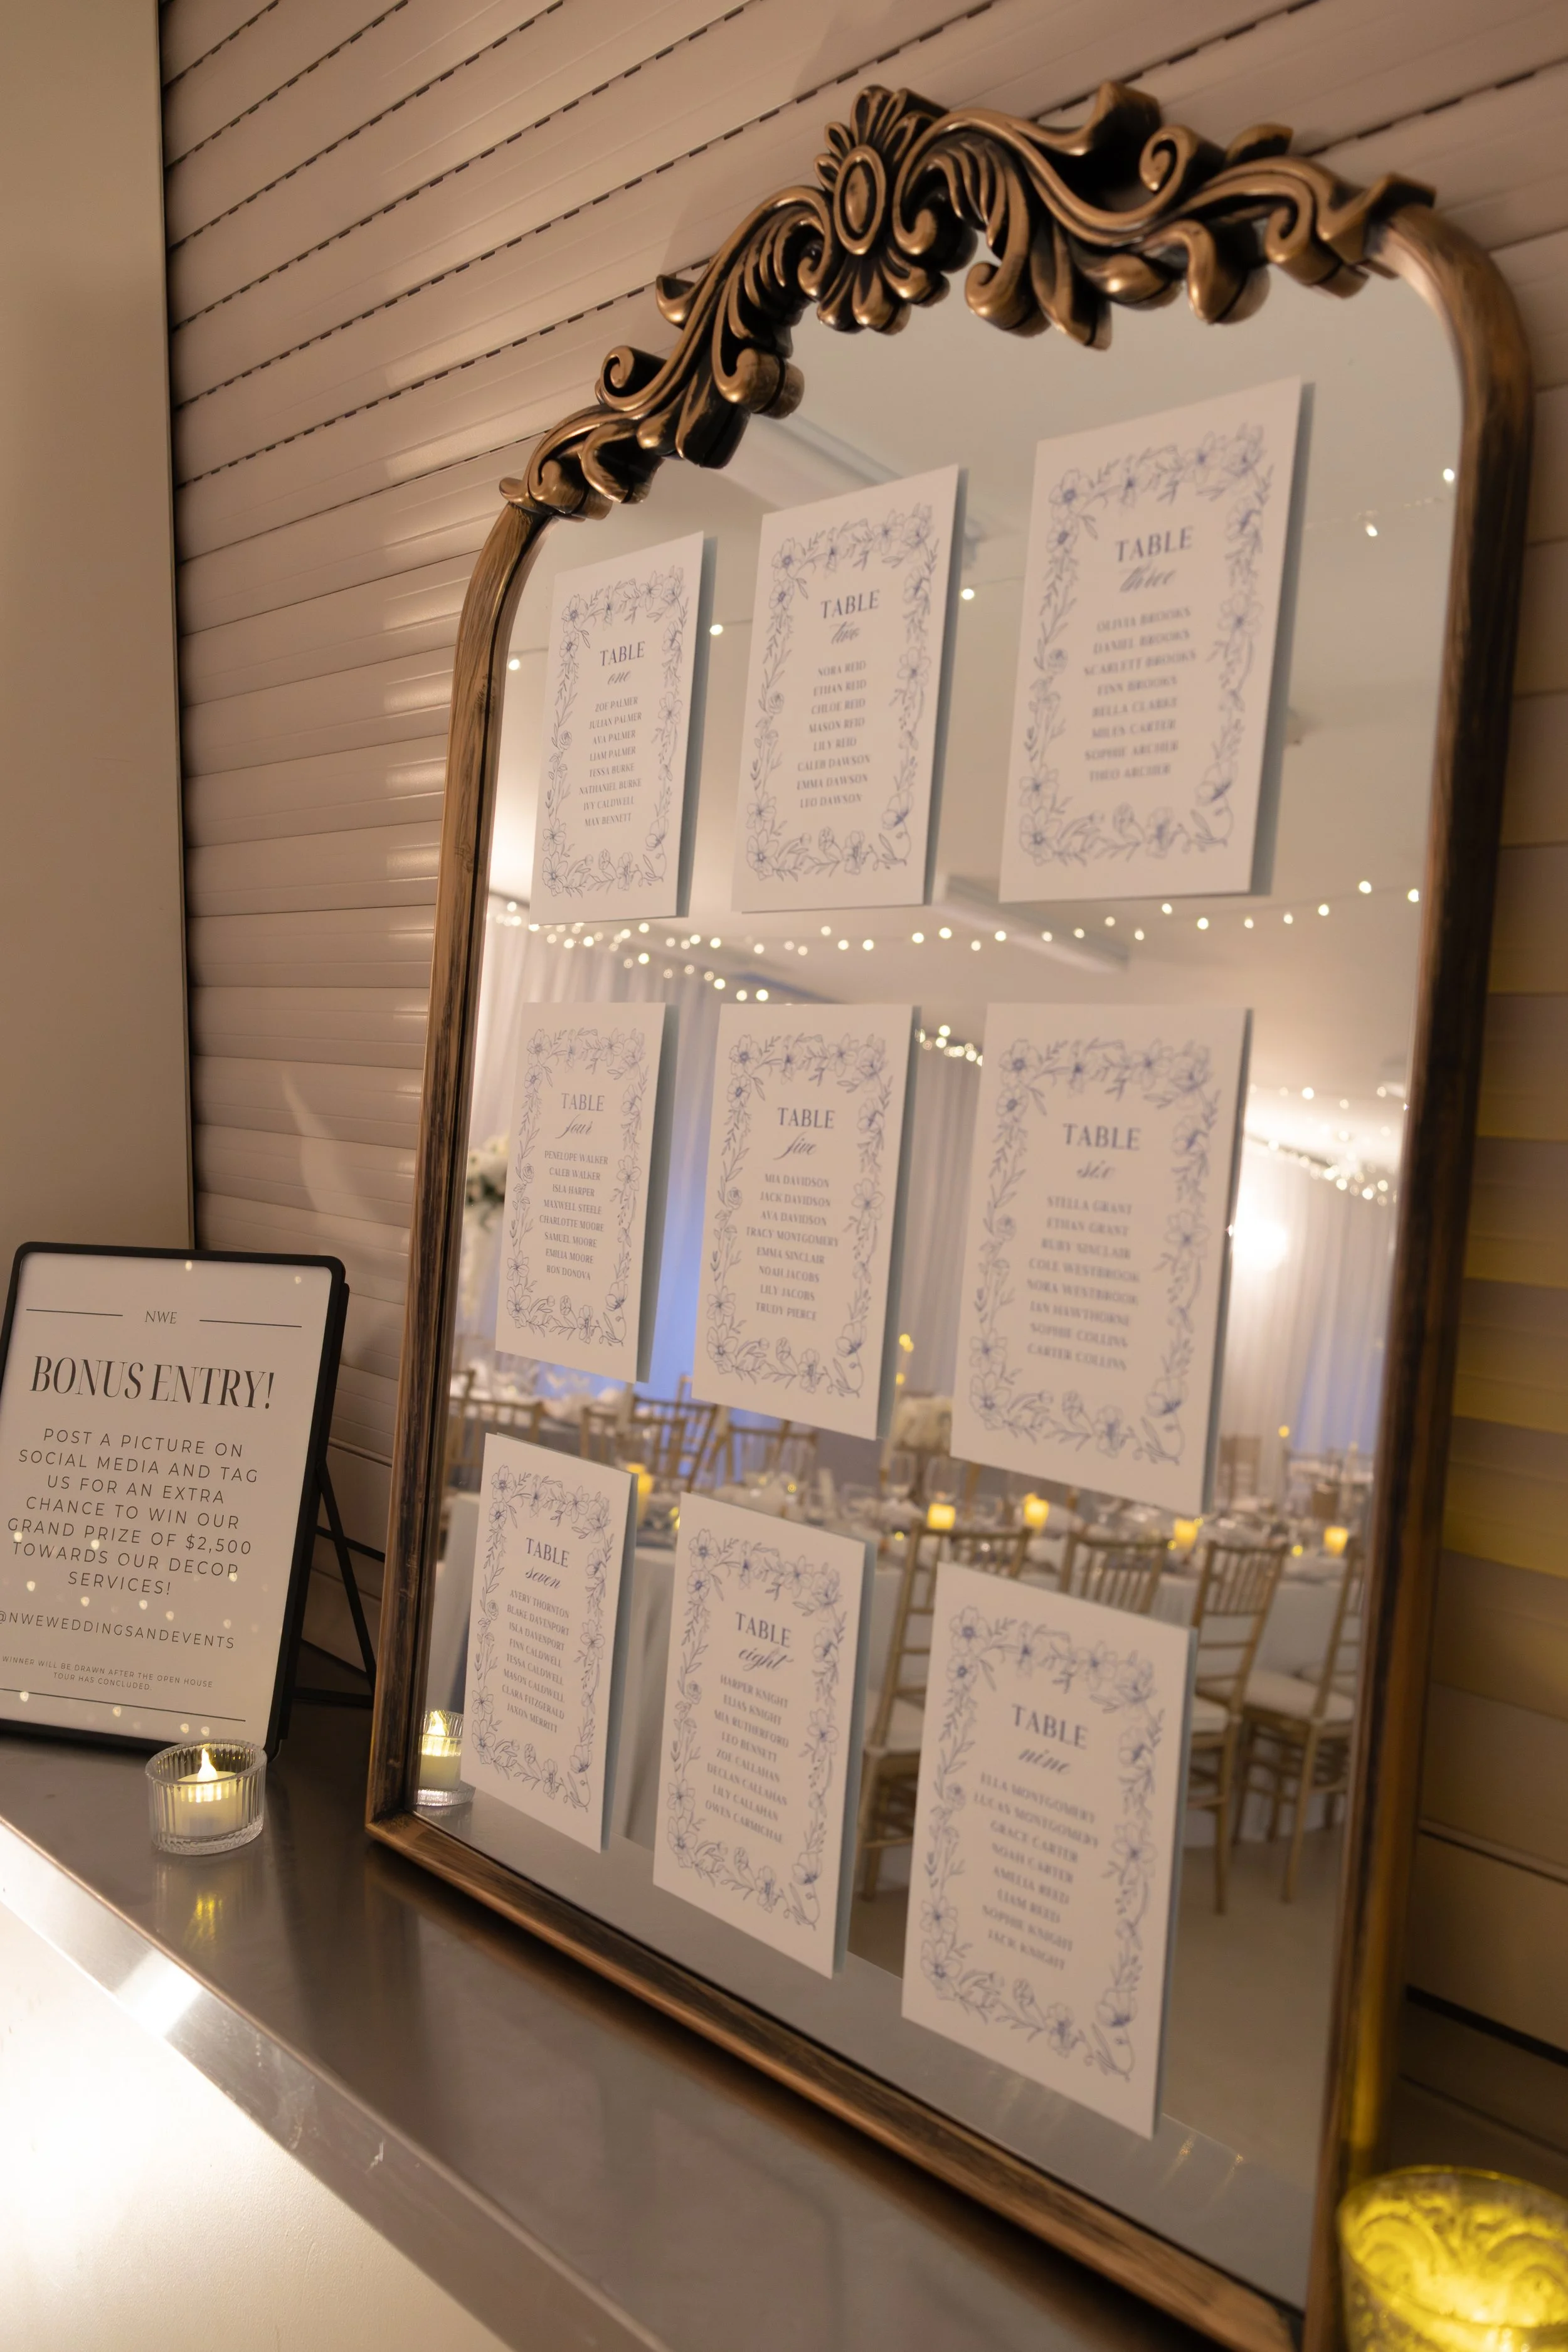 TABLE
one
ZOE PALMER
JULIAN PALMER
AVA PALMER
LIAM PALMER
TESSA BURKE
NATHANIEL BURKE
IVY CALDWELL
MAX BENNETT
TABLE
two
NORA REID
ETHAN REID
CHLOE REID
MASON REID
LILY REID
CALEB DAWSON
EMMA DAWSON
LEO DAWSON
TABLE
three
OLIVIA BROOKS
DANIEL BROOKS
SCARLETT BROOKS
FINN BROOKS
BELLA CLARKE
MILES CARTER
SOPHIE ARCHER
THEO ARCHER
TABLE
four
PENELOPE WALKER
CALEB WALKER
ISLA HARPER
MAXWELL STEELE
CHARLOTTE MOORE
SAMUEL MOORE
EMILIA MOORE
RON DONOVA
TABLE
five
MIA DAVIDSON
JACK DAVIDSON
AVA DAVIDSON
TRACY MONTGOMERY
EMMA SINCLAIR
NOAH JACOBS
LILY JACOBS
TRUDY PIERCE
TABLE
six
STELLA GRANT
ETHAN GRANT
RUBY SINCLAIR
COLE WESTBROOK
NORA WESTBROOK
IAN HAWTHORNE
SOPHIE COLLINS
CARTER COLLINS
TABLE
seven
AVERY THORNTON
BLAKE DAVENPORT
ISLA DAVENPORT
FINN CALDWELL
TESSA CALDWELL
MASON CALDWELL
CLARA FITZGERALD
JAXON MERRITT
TABLE
eight
HARPER KNIGHT
ELIAS KNIGHT
MIA RUTHERFORD
LEO BENNETT
ZOE CALLAHAN
DECLAN CALLAHAN
LILY CALLAHAN
OWEN CARMICHAEL
TABLE
nine
ELLA MONTGOMERY
LUCAS MONTGOMERY
GRACE CARTER
NOAH CARTER
AMELIA REED
LIAM REED
SOPHIE KNIGHT
JACK KNIGHT
NWE
BONUS ENTRY!
POST A PICTURE ON
SOCIAL MEDIA AND TAG
US FOR AN EXTRA
CHANCE TO WIN OUR
GRAND PRIZE OF $2,500
TOWARDS OUR DECOR
SERVICES!
@NWEWEDDINGSANDEVENTS
WINNER WILL BE DRAWN AFTER THE OPEN HOUSE
TOUR HAS CONCLUDED.